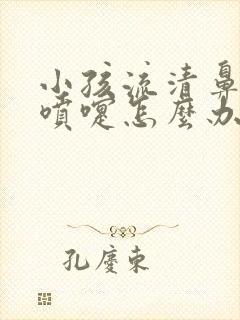 小孩流清鼻
噴嚏怎麼办
孔慶東